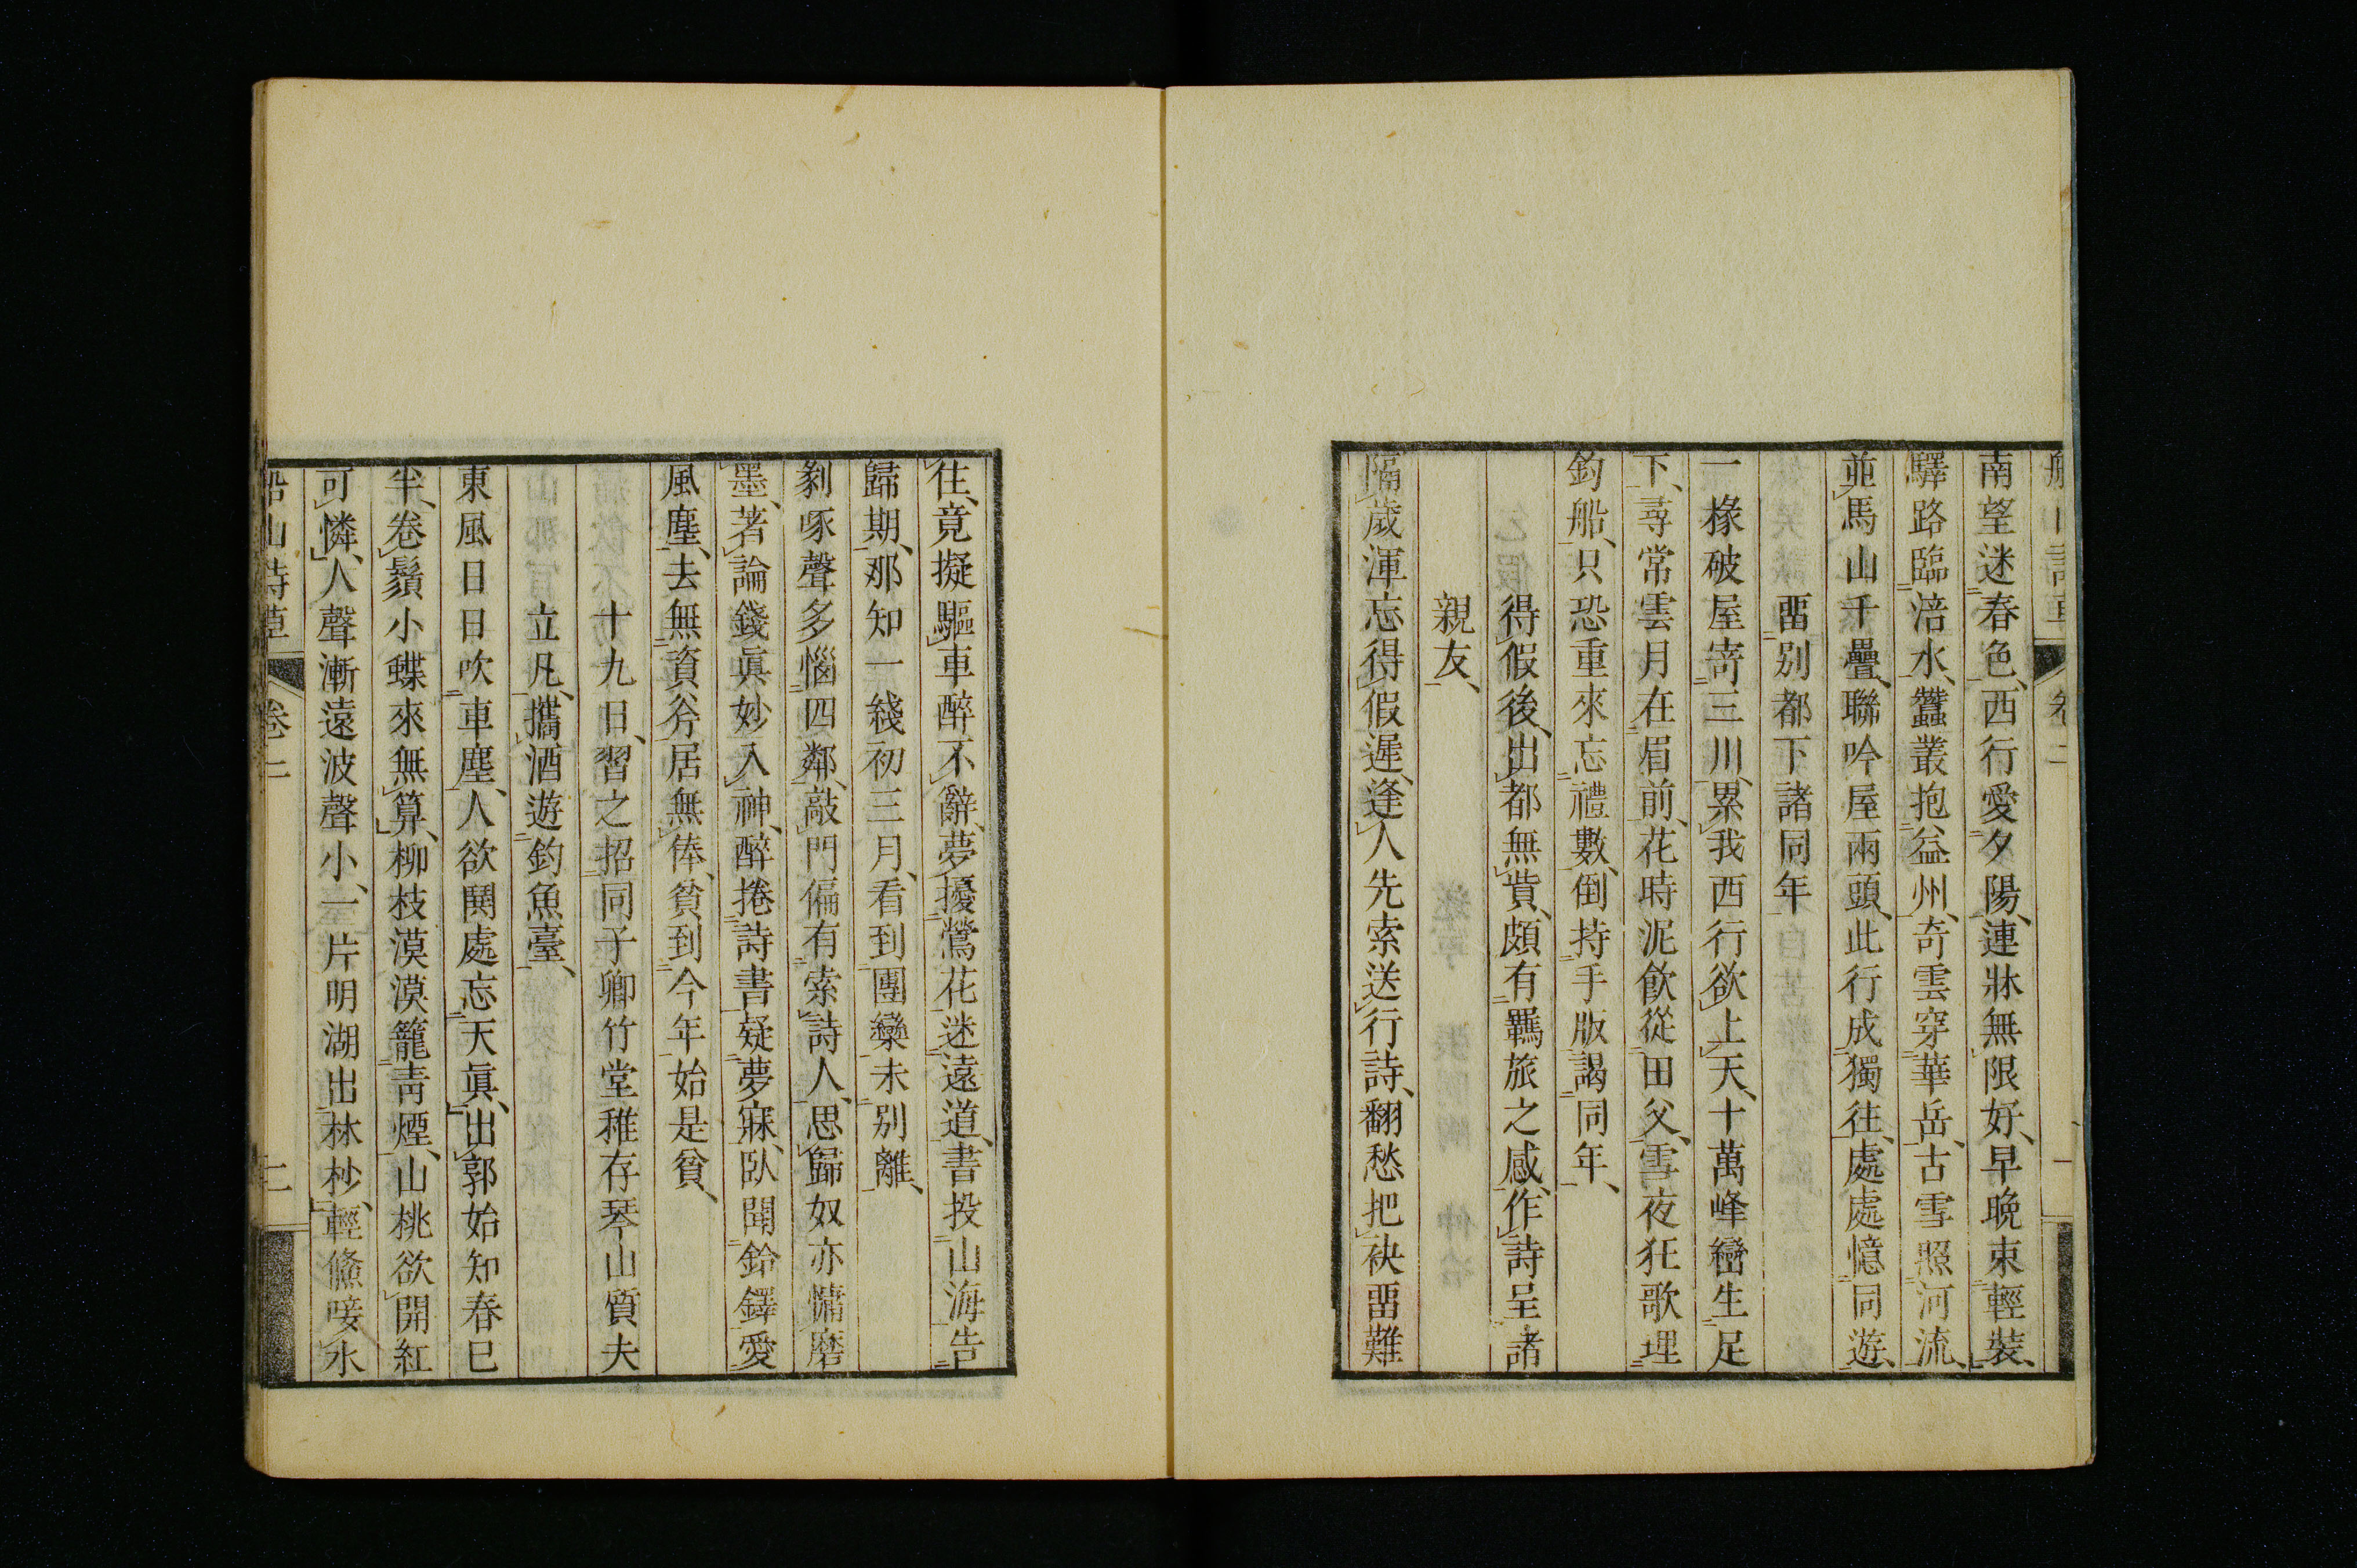 南望迷春色、西行愛夕陽、連牀無限好、早晚束輕裝、
驛路臨涪水、蠶叢抱益州、奇雲穿華岳、古雪照河流、
並馬山千疊、聯吟屋兩頭、此行成獨往、處處憶同遊、
畱別都下諸同年
一椽破屋寄三川、累我西行欲上天、十萬峰巒生足
下、尋常雲月在眉前、花時泥飲從田父、雪夜狂歌埋
釣船、只恐重來忘禮數、倒持手版謁同年、
得假後、出都無貲、頗有羈旅之感、作詩呈諸
親友、
隔歲渾忘得假遲、逢人先索送行詩、翻愁把袂畱難
往、竟擬驅車醉不辭、夢擾鶯花迷遠道、書投山海告
歸期、那知一綫初三月、看到團欒未別離、
剝啄聲多惱四鄰、敲門偏有索詩人、思歸奴亦慵磨
墨、著論錢眞妙入神、醉捲詩書疑夢寐、臥聞鈴鐸愛
風塵、去無資斧居無俸、貧到今年始是貧、
十九日、習之招同子卿竹堂稚存琴山質夫
立凡、攜酒遊釣魚臺、
東風日日吹車塵、人欲鬨處忘天眞、出郭始知春已
半、卷鬚小蝶來無算、柳枝漠漠籠靑煙、山桃欲開紅
可憐、人聲漸遠波聲小、一片明湖出林杪、輕鯈唼水
船山詩草 卷二 二